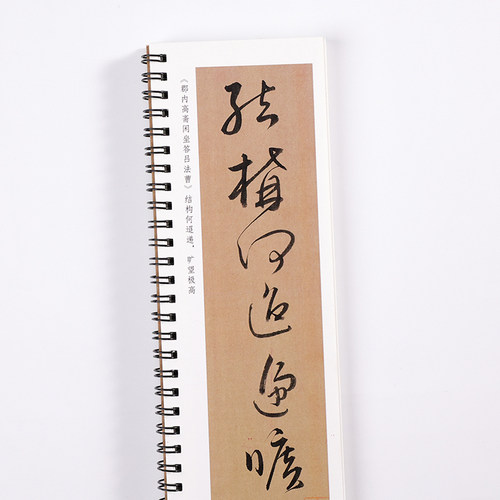 結構何迢遞曠
《郡内高斋闲坐答吕法曹》结构何迢递，旷望极高